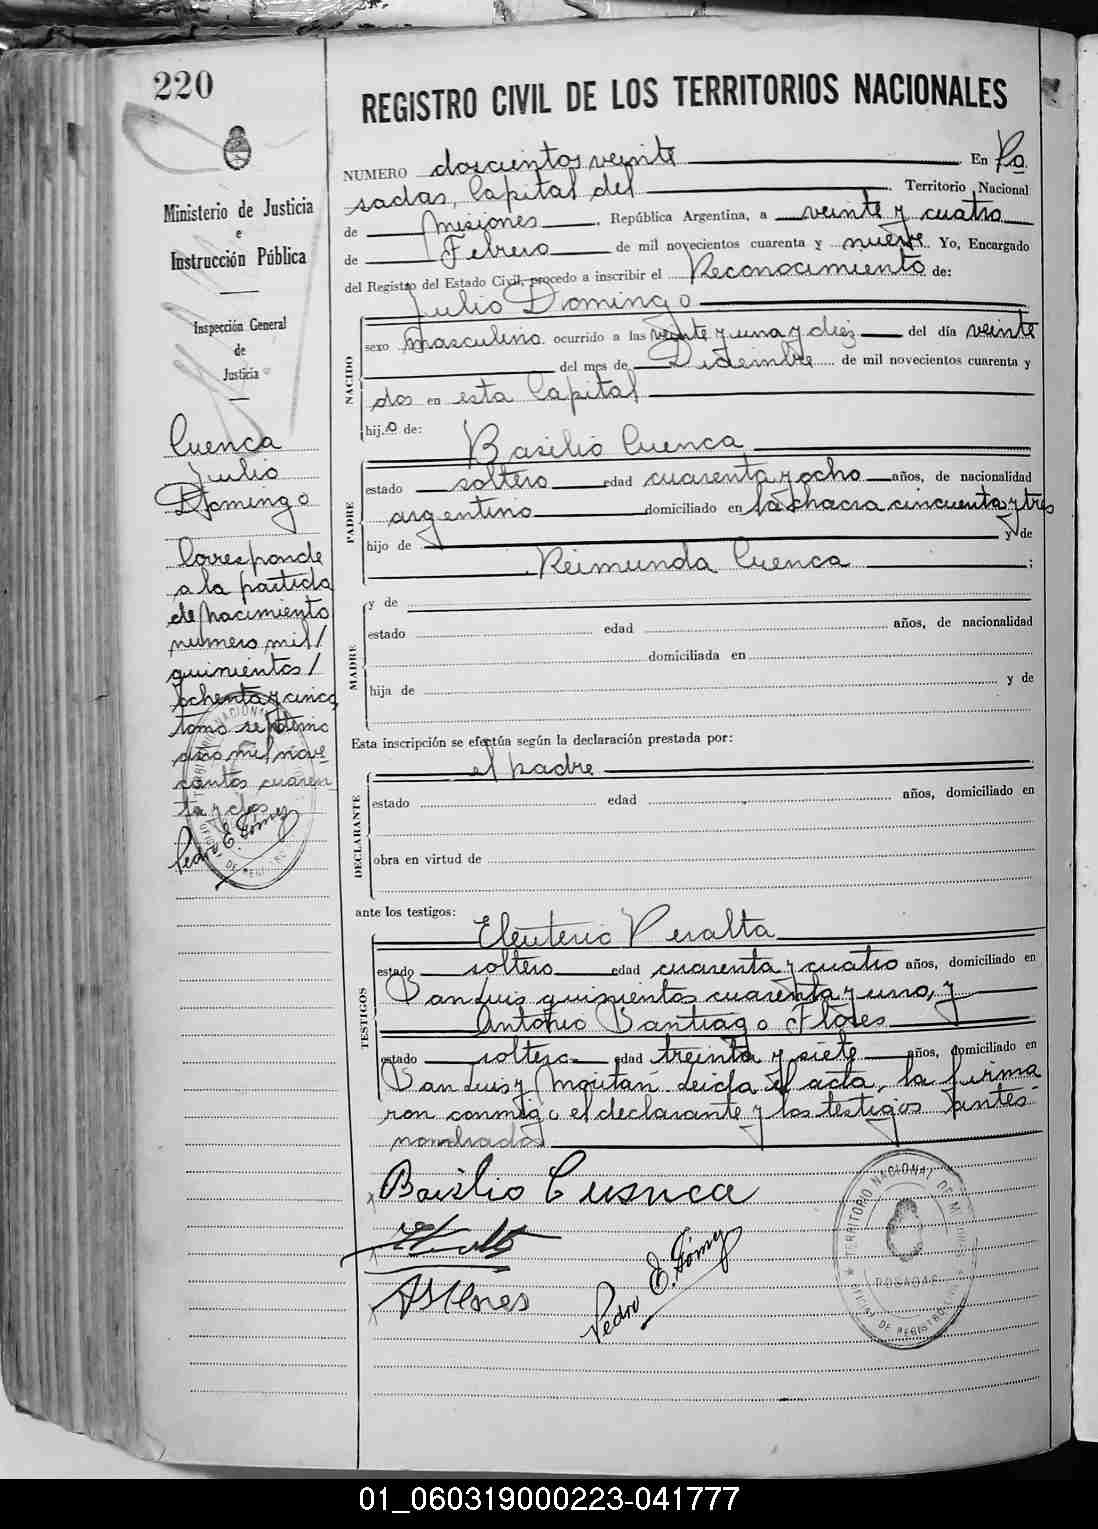 220
REGISTRO CIVIL DE LOS TERRITORIOS NACIONALES
Ministerio de Justicia
e
Instrucción Pública
Inspección General
de
Justicia
Cuenca
Julio
Domingo
Corresponde
a la partida
de nacimiento
numero mil/
quinientos/
ochenta y cinco
tomo septimo
año mil nove
cientos cuaren
ta y dos
Pedro E. Gómez
NUMERO doscientos veinte En Po
sadas, Capital del Territorio Nacional
de Misiones, República Argentina, a veinte y cuatro
de Febrero de mil novecientos cuarenta y nueve Yo, Encargado
del Registro del Estado Civil, procedo a inscribir el Reconocimiento de:
Julio Domingo
NACIDO
sexo masculino ocurrido a las veinte y una y diez del día veinte
del mes de Diciembre de mil novecientos cuarenta y
dos en esta Capital
hij.o de: Basilio Cuenca
PADRE
estado soltero edad cuarenta y ocho años, de nacionalidad
argentino domiciliado en la chacra cincuenta y tres
hijo de y de
Reimunda Cuenca ;
MADRE
y de
estado edad años, de nacionalidad
domiciliada en
hija de y de
Esta inscripción se efectúa según la declaración prestada por:
el padre
DECLARANTE
estado edad años, domiciliado en
obra en virtud de
ante los testigos:
Eleuterio Peralta
TESTIGOS
estado soltero edad cuarenta y cuatro años, domiciliado en
San Luis quinientos cuarenta y uno, y
Antonio Santiago Flores
estado soltero edad treinta y siete años, domiciliado en
San Luis y Moritán. Leida el acta, la firma
ron conmigo el declarante y los testigos antes
nombrados
Basilio Cuenca
Pedro E. Gómez
TERRITORIO NACIONAL DE MISIONES
POSADAS
OFICINA DE REGISTRO CIVIL
01_060319000223-041777